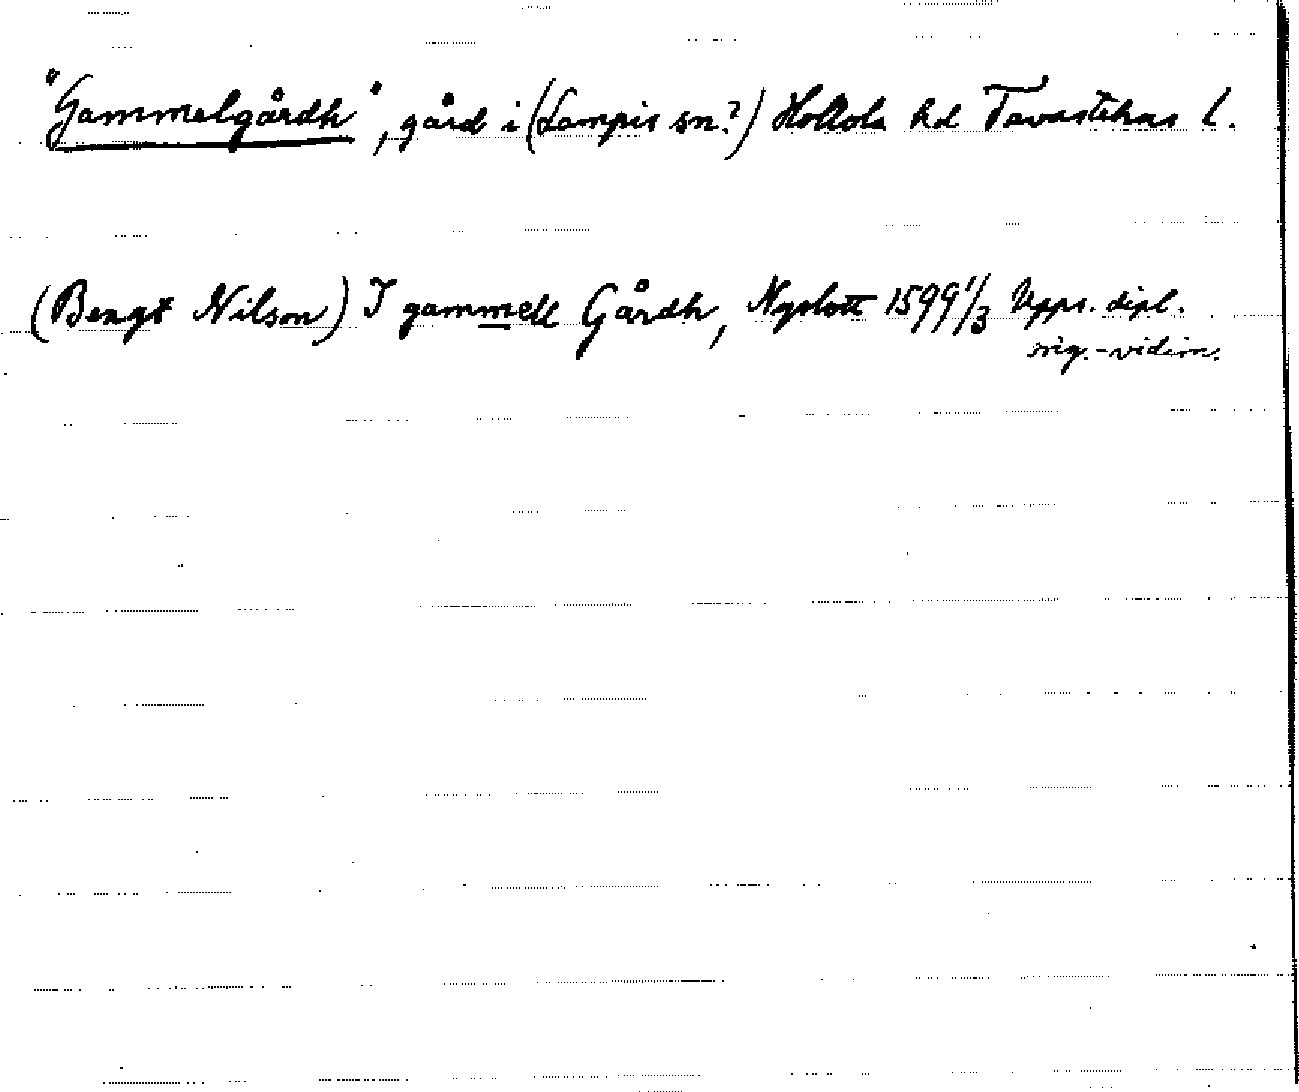 "Gammelgårdh", gård i (Lampis sn.?) Hollola hd Tavastehus l.
(Bengt Nilson) I gammell Gårdh, Nyslott 1599 1/3 Upps. dipl.
orig.-vidim.